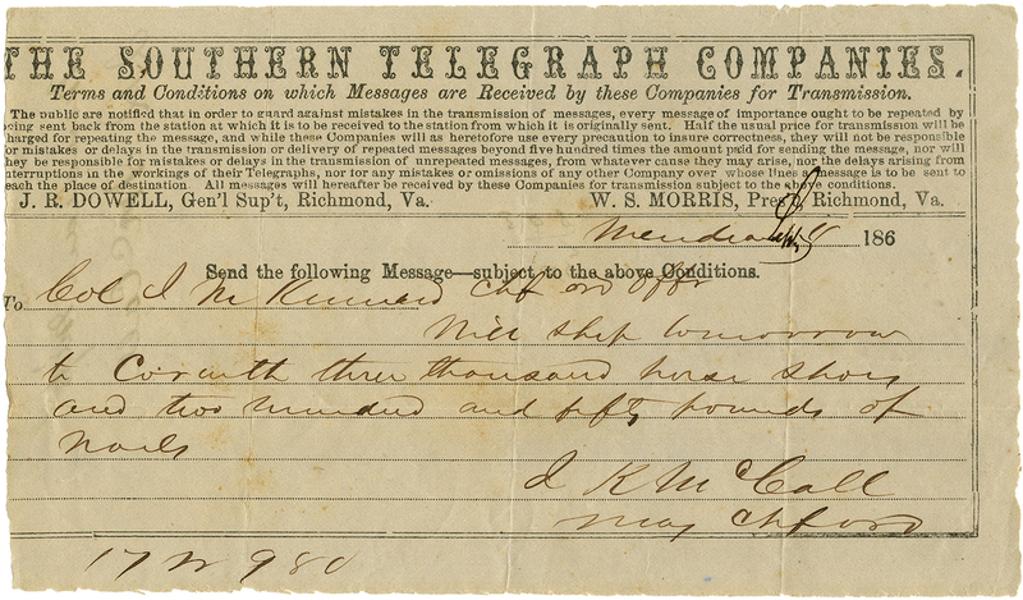 THE SOUTHERN TELEGRAPH COMPANIES.
Terms and Conditions on which Messages are Received by these Companies for Transmission.
The public are notified that in order to guard against mistakes in the transmission of messages, every message of importance ought to be repeated by
being sent back from the station at which it is to be received to the station from which it is originally sent. Half the usual price for transmission will be
harged for repeating the message, and while these Companies will as heretofore use every precaution to insure correctness, they will not be responsible
or mistakes or delays in the transmission or delivery of repeated messages beyond five hundred times the amount paid for sending the message, nor will
hey be responsible for mistakes or delays in the transmission of unrepeated messages, from whatever cause they may arise, nor the delays arising from
nterruptions in the workings of their Telegraphs, nor for any mistakes or omissions of any other Company over whose lines a message is to be sent to
each the place of destination. All messages will hereafter be received by these Companies for transmission subject to the above conditions.
J. R. DOWELL, Gen'l Sup't, Richmond, Va. W. S. MORRIS, Pres't, Richmond, Va.
186
Send the following Message—subject to the above Conditions.
To Col J M Kennard Chf Ord Offr
Will ship tomorrow
to Corinth three thousand horse shoes
and two hundred and fifty pounds of
nails
J K McCall
Maj Chf Ord
17 W 980